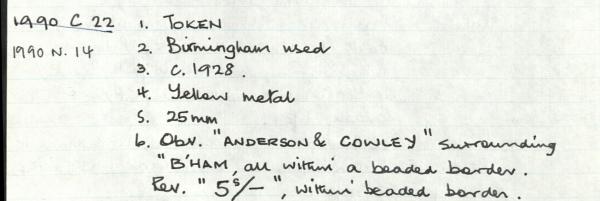 1990 C 22 1. TOKEN
1990 N. 14 2. Birmingham used
3. C. 1928.
4. Yellow metal
5. 25mm
6. Obv. "ANDERSON & COWLEY" surrounding
"B'HAM, all within a beaded border.
Rev. "5s/-", within beaded border.